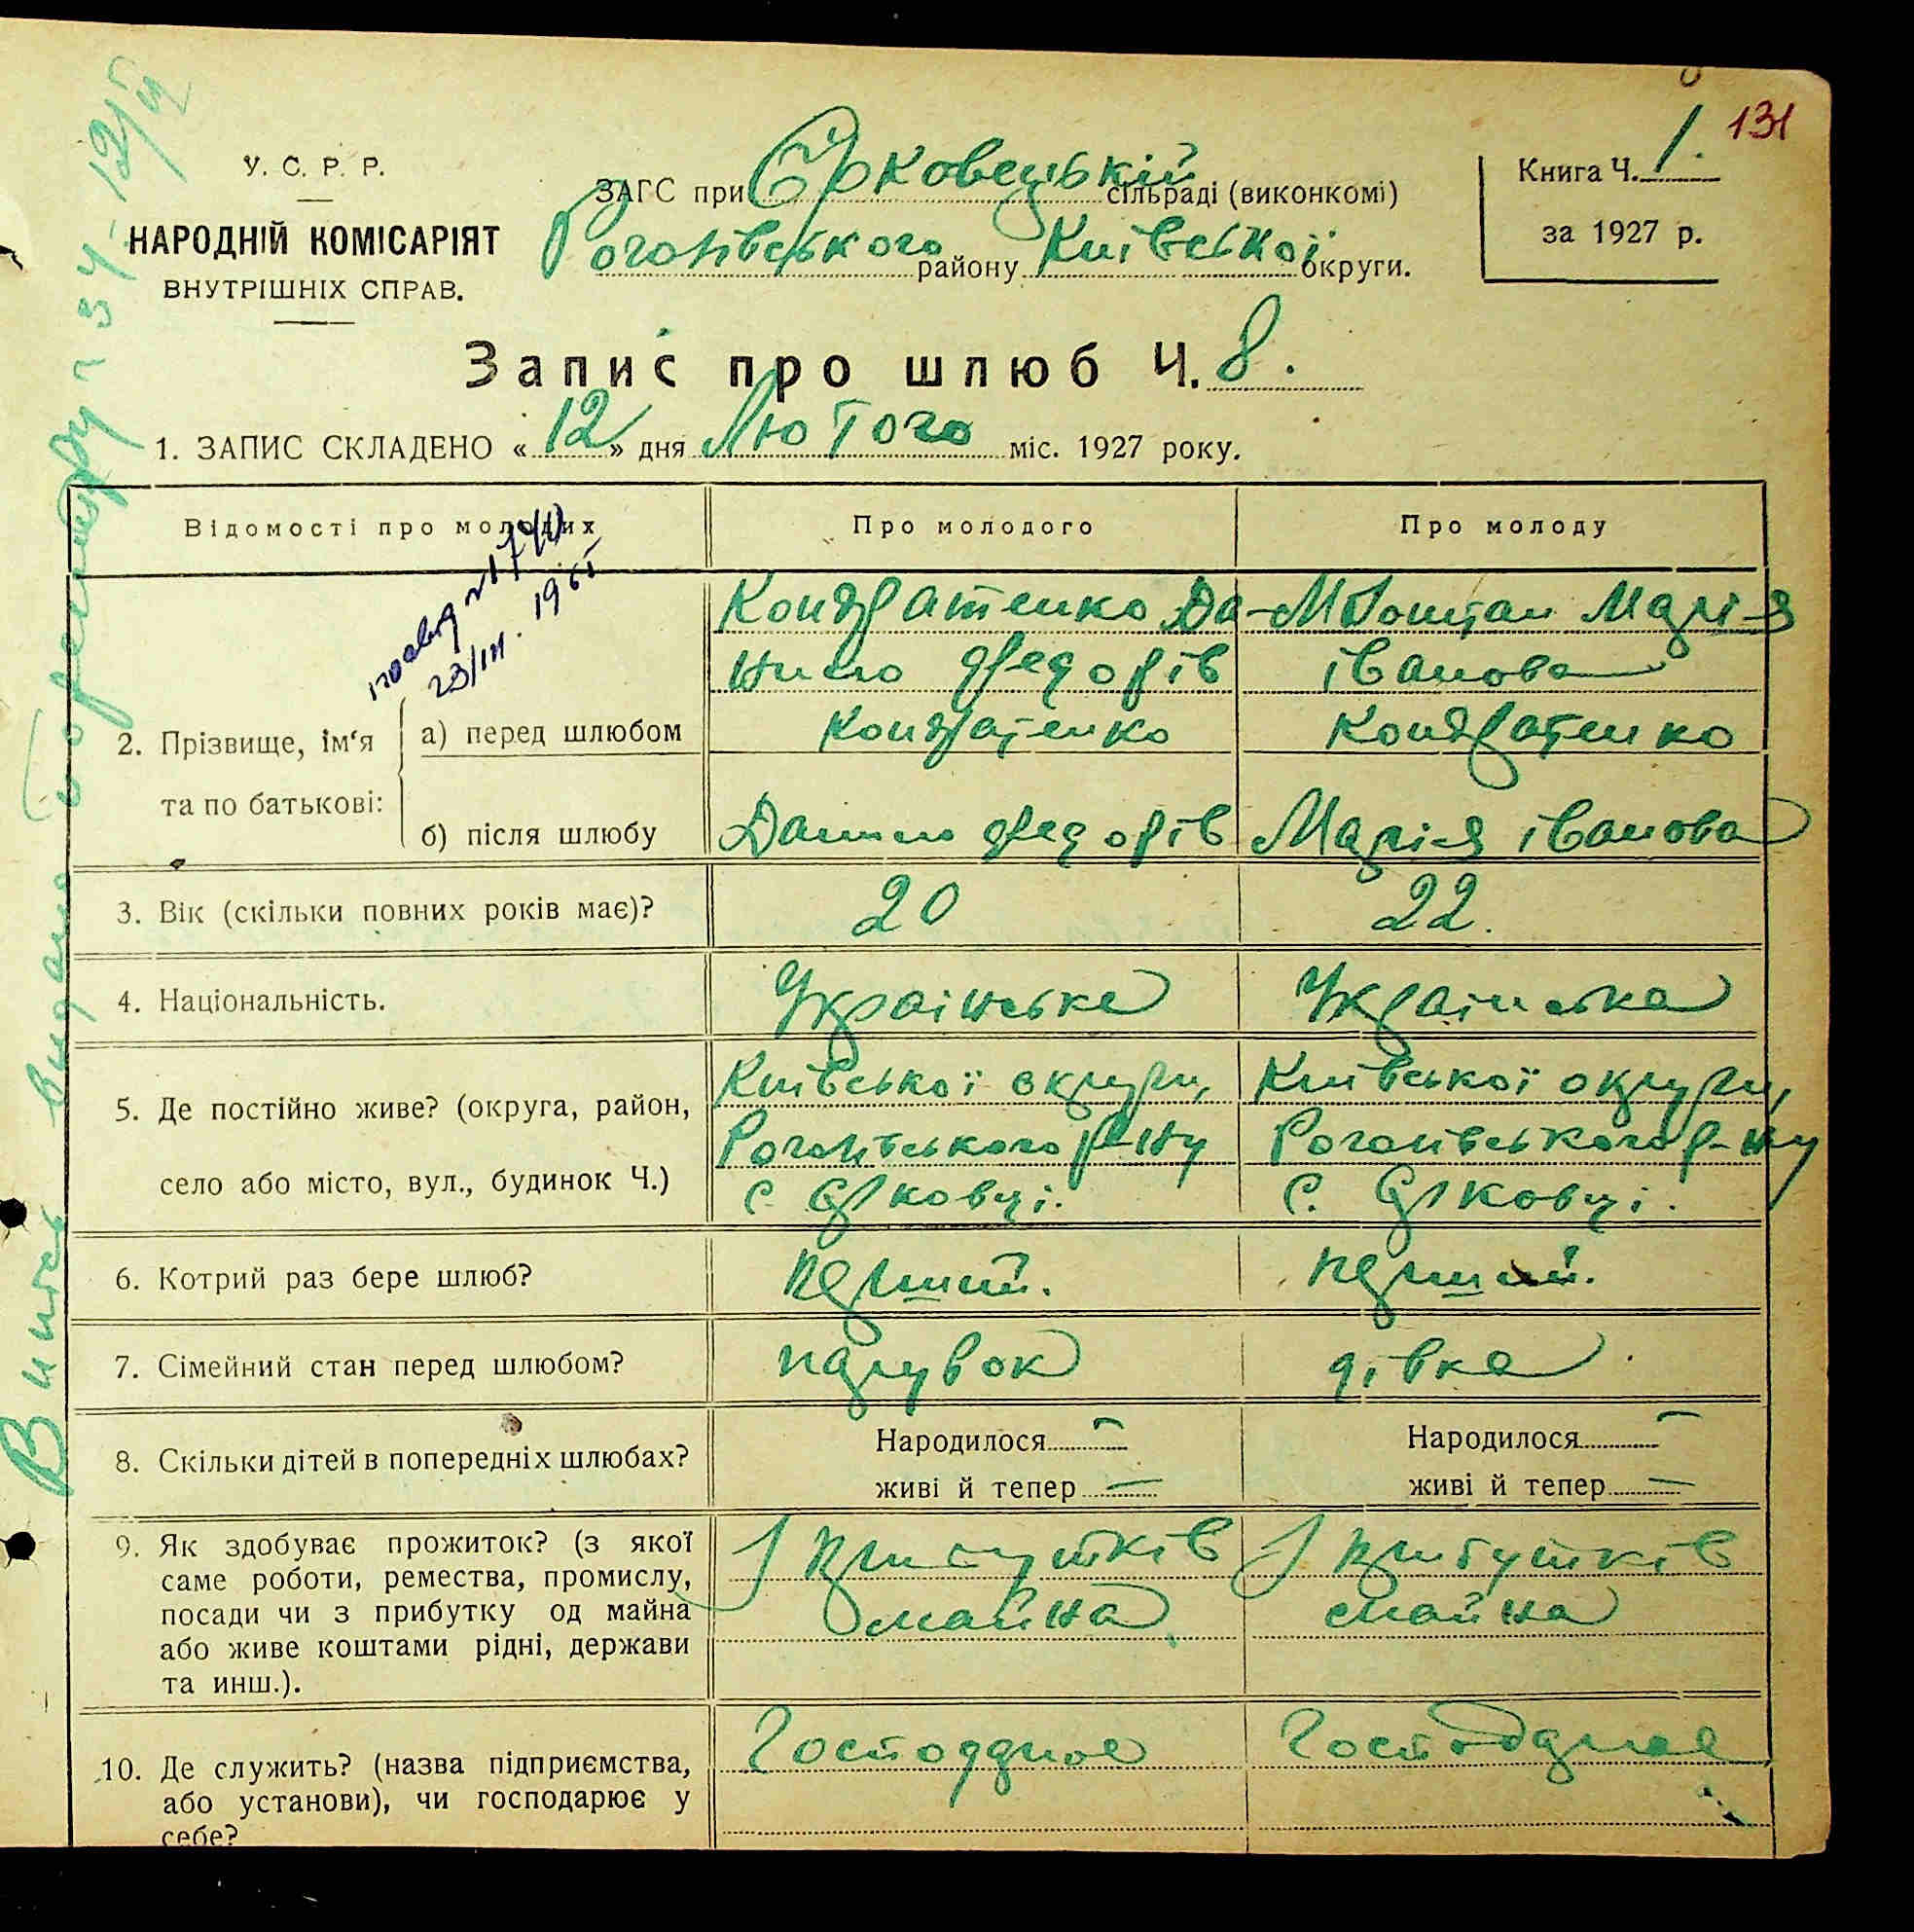 131
У. С. Р. Р.
НАРОДНІЙ КОМІСАРІЯТ
ВНУТРІШНІХ СПРАВ.
ЗАГС при Єрковецькій сільраді (виконкомі)
Рогозівського району Київської округи.
Книга Ч. 1.
за 1927 р.
Запис про шлюб Ч. 8.
1. ЗАПИС СКЛАДЕНО « 12 » дня Лютого міс. 1927 року.
Відомості про молодих
Про молодого
Про молоду
23/III. 1961
2. Прізвище, ім'я та по батькові:
а) перед шлюбом
Кондратенко Да-
нило Федорів
Марія
Іванова
б) після шлюбу
Кондратенко
Данило Федорів
Кондратенко
Марія Іванова
3. Вік (скільки повних років має)?
20
22.
4. Національність.
Українське
Українська
5. Де постійно живе? (округа, район,
село або місто, вул., будинок Ч.)
Київської округи,
Рогозівського р-ну
с. Єрковці.
Київської округи,
Рогозівського р-ну
с. Єрковці.
6. Котрий раз бере шлюб?
перший.
перший.
7. Сімейний стан перед шлюбом?
парубок
дівка
8. Скільки дітей в попередніх шлюбах?
Народилося —
живі й тепер —
Народилося —
живі й тепер —
9. Як здобуває прожиток? (з якої
саме роботи, ремества, промислу,
посади чи з прибутку од майна
або живе коштами рідні, держави
та инш.).
З прибутків
майна
З прибутків
майна
10. Де служить? (назва підприємства,
або установи), чи господарює у
себе?